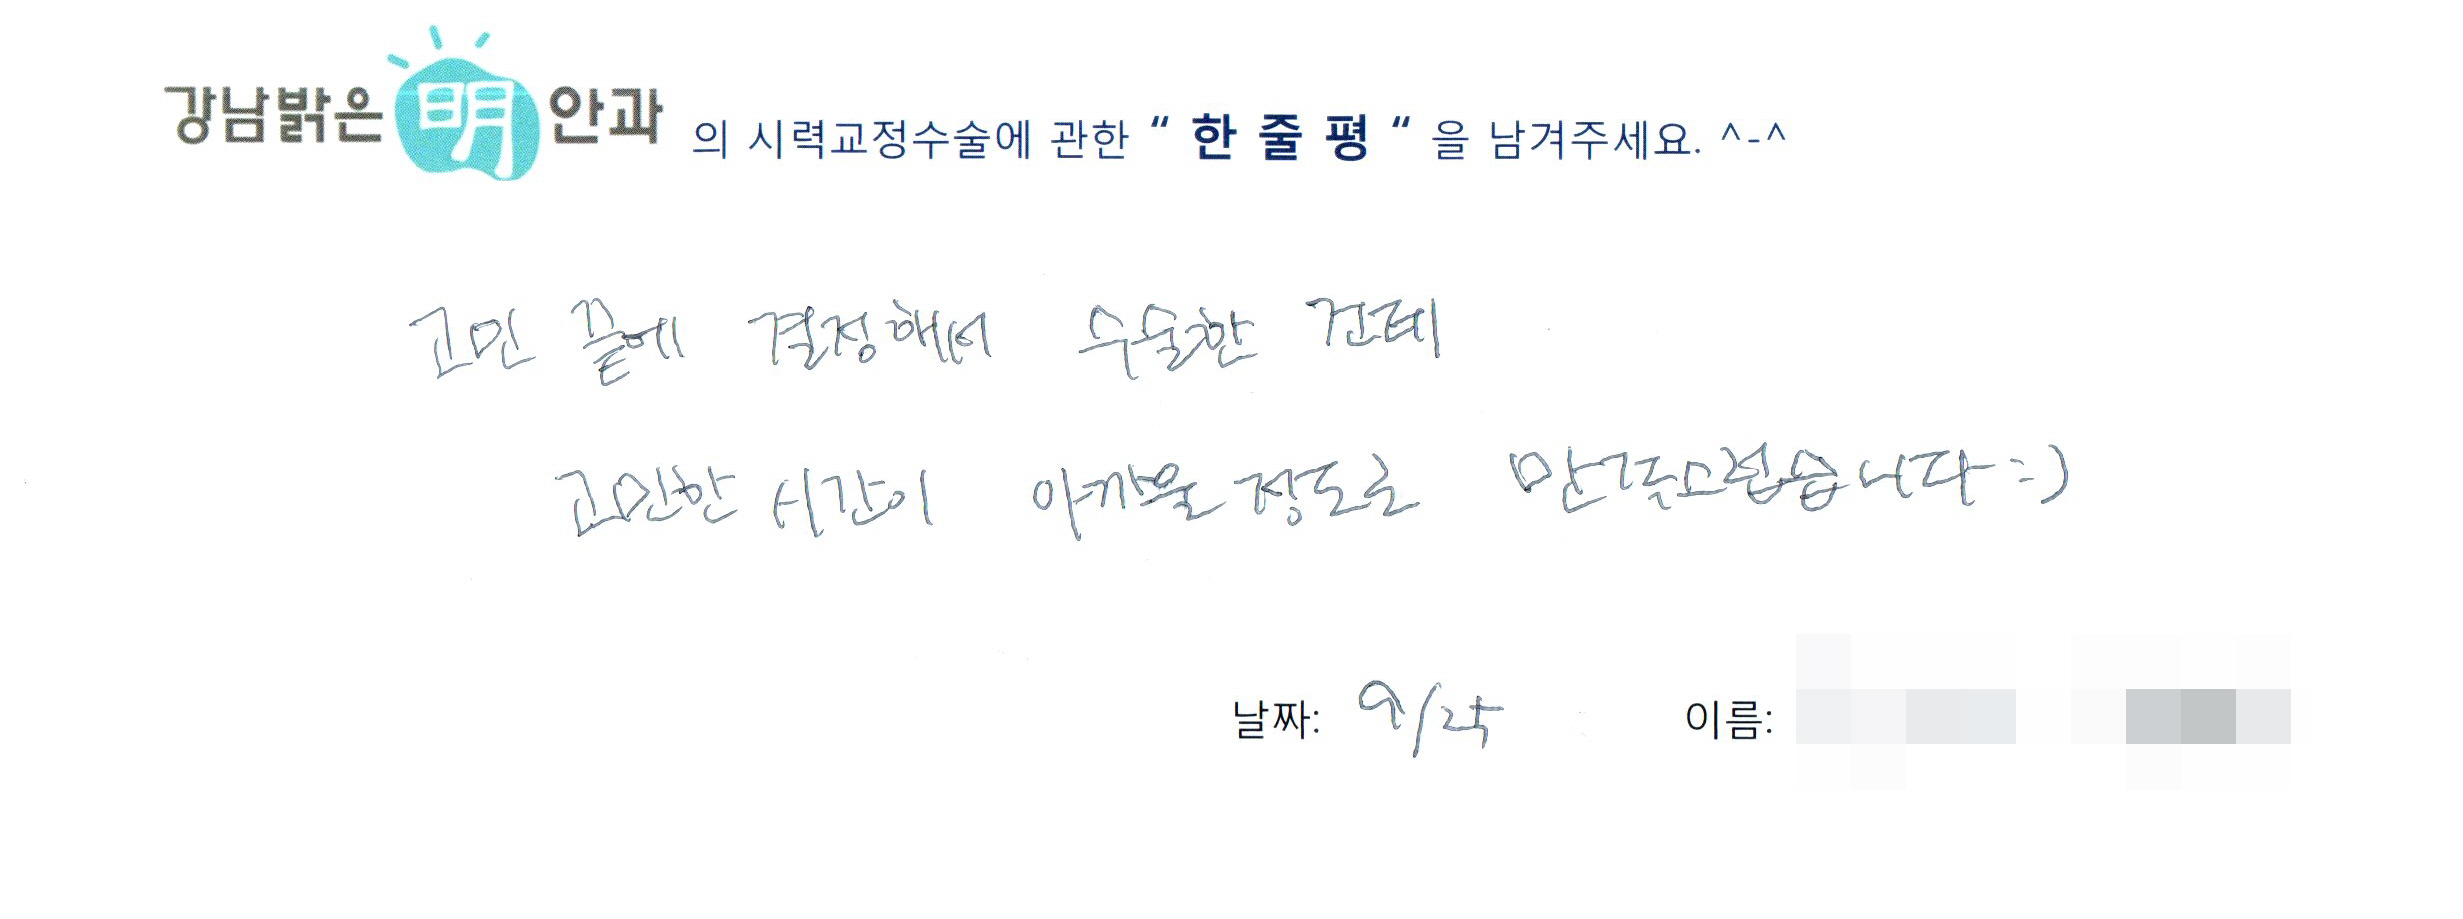 강남밝은明안과 의 시력교정수술에 관한 “ 한 줄 평 “ 을 남겨주세요. ^-^
고민 끝에 결정해서 수술한 건데
고민한 시간이 아까울 정도로 만족스럽습니다 :)
날짜: 9/25 이름: